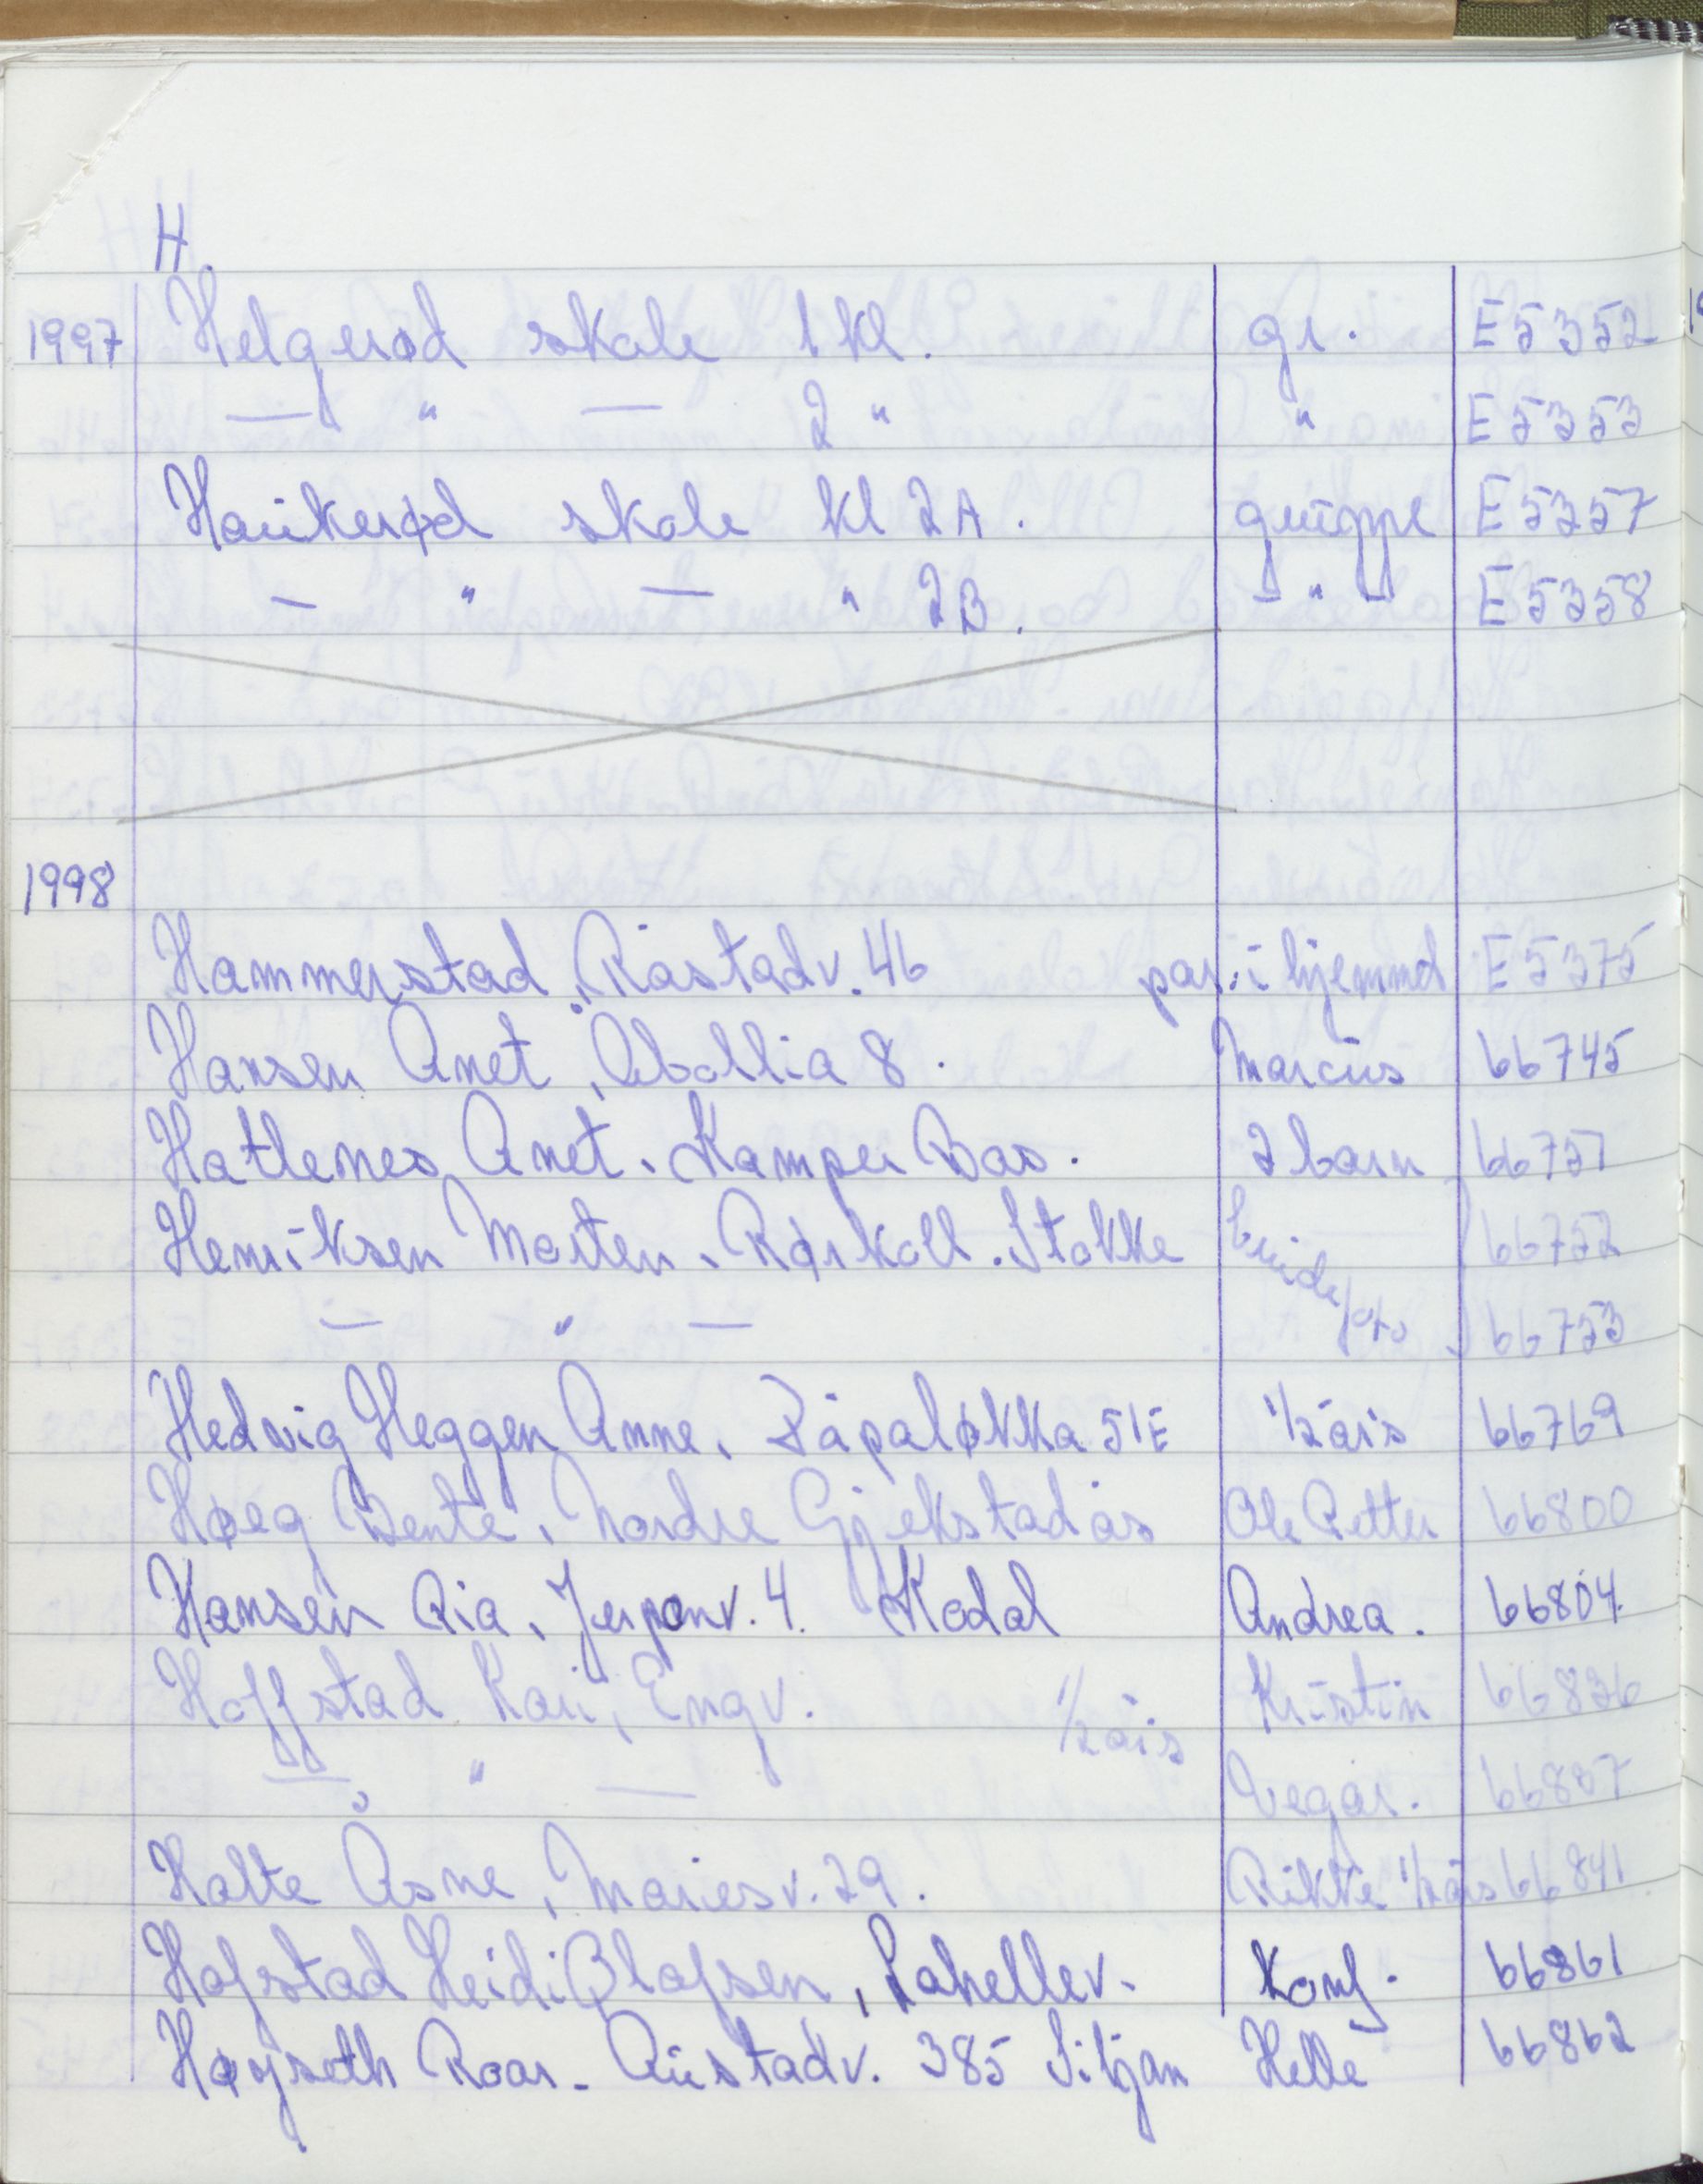 H.
1997 Helgerød skole 1 kl. gr. E5352
— " — 2 " " E5353
Haukerød skole kl 2A. gruppe E5357
— " — " 2B. – " – E5358
1998
Hammerstad, Råstadv. 46 par i hjemmet E5375
Hansen Anet, 8. Marcus 66745
Hatlenes Anet. Kamper Bas. 2 barn 66751
Henriksen Morten. Rørkoll. Stokke brude 66752
— " — 66753
Hedvig Heggen Anne. Råpaløkka 51E 1/2 års 66769
Høeg Bente, Nordre Gjekstadås Ole Petter 66800
Hansen Ria, Jerpenv. 4. Kodal Andrea. 66804.
Hoffstad Kari, Engv. 1/2 års Kristin 66836
— " — Vegar. 66837
Holte Åsne, Mariesv. 29. Rikke 1/2 års 66841
Hofstad Heidi Olofsen, Lahellev. Konf. 66861
Høyseth Roar. Austadv. 385 Siljan Helle 66862